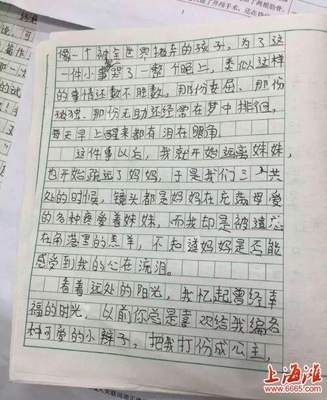 像一个被全世界抛弃的孩子，为了这
一件小事哭了一整个晚上，类似这样
的事情还数不胜数，那份委屈、那份
那份无助还经常在梦中徘徊，
每天早上醒来都有泪在眼角
这件事以后，我就开始远离妹妹，
也开始疏远了妈妈，于是我们三人共
处的时候，镜头都是妈妈在充满母爱
的多种疼爱着妹妹，而我却是被遗忘
在角落里的羔羊，不知道妈妈是否能
感受到我的心在流泪。
看着远处的阳光，我忆起曾经幸
福的时光，以前你总是喜欢给我编各
种可爱的小辫子，把我打份成公主，
上海滩
www.6665.com